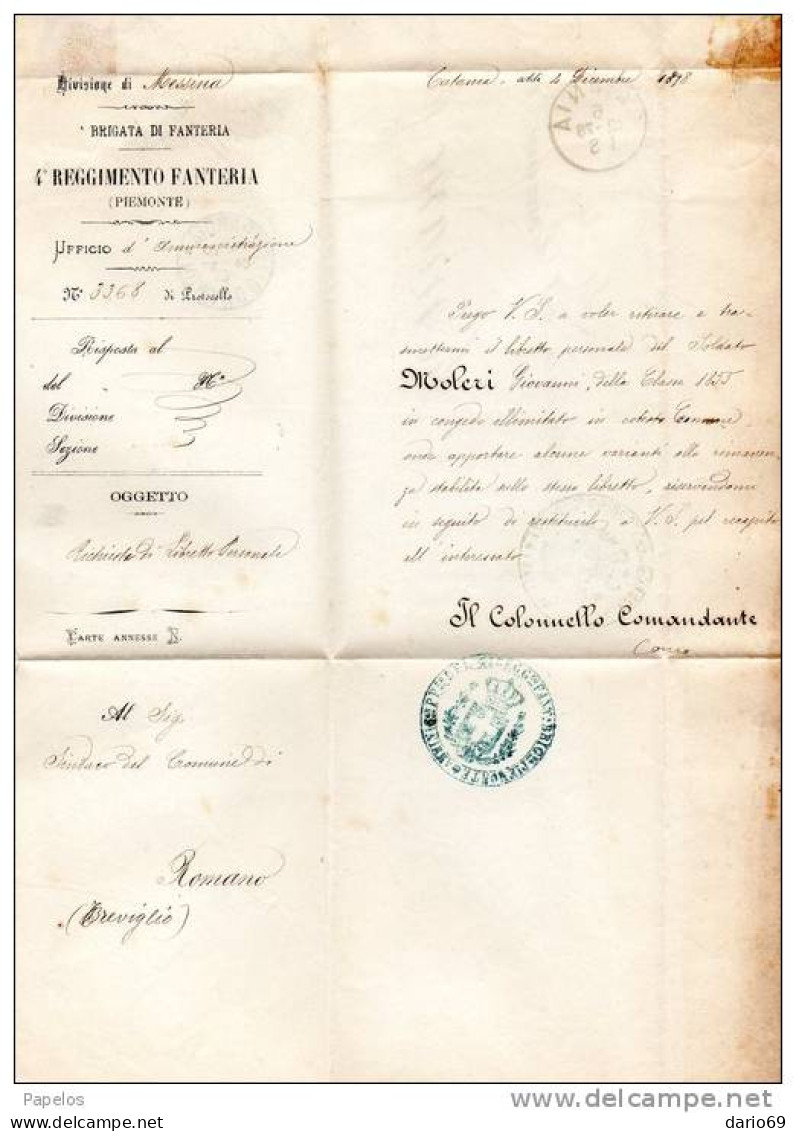 Divisione di Messina
BRIGATA DI FANTERIA
4° REGGIMENTO FANTERIA
(PIEMONTE)
UFFICIO d'Amministrazione
N° 3368 di Protocollo
Risposta al
del N°
Divisione
Sezione
OGGETTO
Richiesta di Libretto Personale
CARTE ANNESSE N.
Al Sig.
Sindaco del Comune di
Romano
(Treviglio)
Catania, addì 4 Dicembre 1878
Prego V. S. a voler ritirare e tra-
smettermi il libretto personale del Soldato
Moleri Giovanni, della Classe 1855
in congedo illimitato in cotesto Comune
onde apportare alcune varianti alla rimanen-
za stabilita sullo stesso libretto, riservandomi
in seguito di restituirlo a V. S. pel recapito
all'interessato.
Il Colonnello Comandante
Papelos
www.delcampe.net
dario69